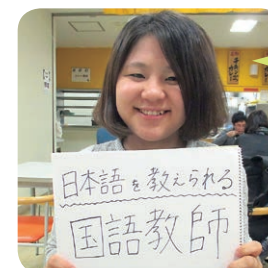 日本語を教えられる
国語教師